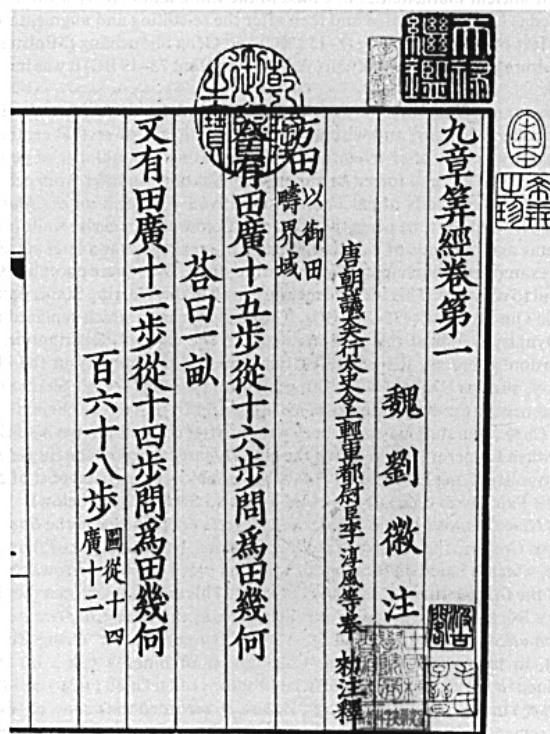 天祿繼鑑
乾隆御覽之寶
宋本
希世之珍
九章筭經卷第一
魏劉徽注
唐朝議大夫行太史令輕車都尉臣李淳風等奉 勑注釋
方田 以御田疇界域
今有田廣十五步從十六步問爲田幾何
荅曰一畝
又有田廣十二步從十四步問爲田幾何
百六十八步 圖從十四廣十二